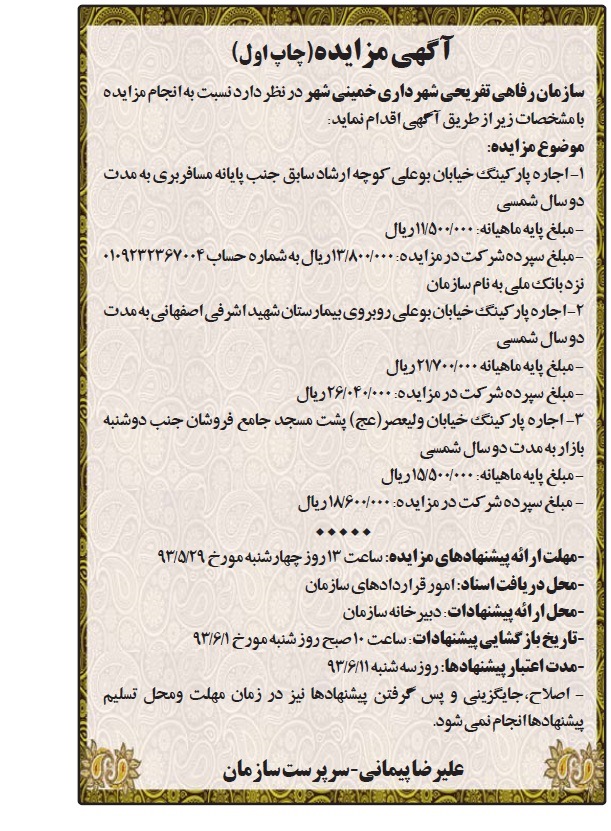 آگهی مزایده(چاپ اول)
سازمان رفاهی تفریحی شهرداری خمینی شهر در نظر دارد نسبت به انجام مزایده
با مشخصات زیر از طریق آگهی اقدام نماید:
موضوع مزایده:
۱- اجاره پارکینگ خیابان بوعلی کوچه ارشاد سابق جنب پایانه مسافربری به مدت
دو سال شمسی
- مبلغ پایه ماهیانه: ۱۱/۵۰۰/۰۰۰ریال
-مبلغ سپرده شرکت در مزایده: ۱۳/۸۰۰/۰۰۰ریال به شماره حساب ۰۱۰۹۲۳۲۳۶۷۰۰۴
نزد بانک ملی به نام سازمان
۲- اجاره پارکینگ خیابان بوعلی روبروی بیمارستان شهید اشرفی اصفهانی به مدت
دو سال شمسی
-مبلغ پایه ماهیانه ۲۱/۷۰۰/۰۰۰ریال
- مبلغ سپرده شرکت در مزایده: ۲۶/۰۴۰/۰۰۰ریال
۳- اجاره پارکینگ خیابان ولیعصر(عج) پشت مسجد جامع فروشان جنب دوشنبه
بازار به مدت دو سال شمسی
- مبلغ پایه ماهیانه: ۱۵/۵۰۰/۰۰۰ریال
- مبلغ سپرده شرکت در مزایده: ۱۸/۶۰۰/۰۰۰ریال
-مهلت ارائه پیشنهادهای مزایده: ساعت ۱۳ روز چهارشنبه مورخ ۹۳/۵/۲۹
-محل دریافت اسناد: امور قراردادهای سازمان
-محل ارائه پیشنهادات: دبیرخانه سازمان
-تاریخ بازگشایی پیشنهادات: ساعت ۱۰ صبح روز شنبه مورخ ۹۳/۶/۱
-مدت اعتبار پیشنهادها: روز سه شنبه ۹۳/۶/۱۱
- اصلاح،جایگزینی و پس گرفتن پیشنهادها نیز در زمان مهلت ومحل تسلیم
پیشنهادها انجام نمی شود.
علیرضا پیمانی-سرپرست سازمان